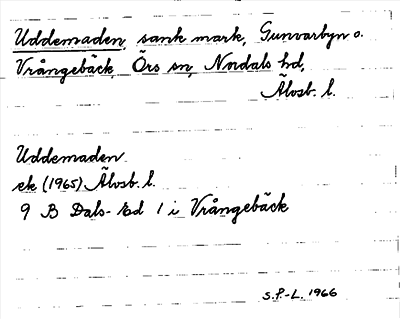 Uddemaden, sank mark, Gunvarbyn o.
Vrångebäck, Örs sn, Nordals hd,
Älvsb. l.
Uddemaden
ek (1965) Älvsb. l.
9 B Dals-Ed 1 i Vrångebäck
S.P.-L. 1966